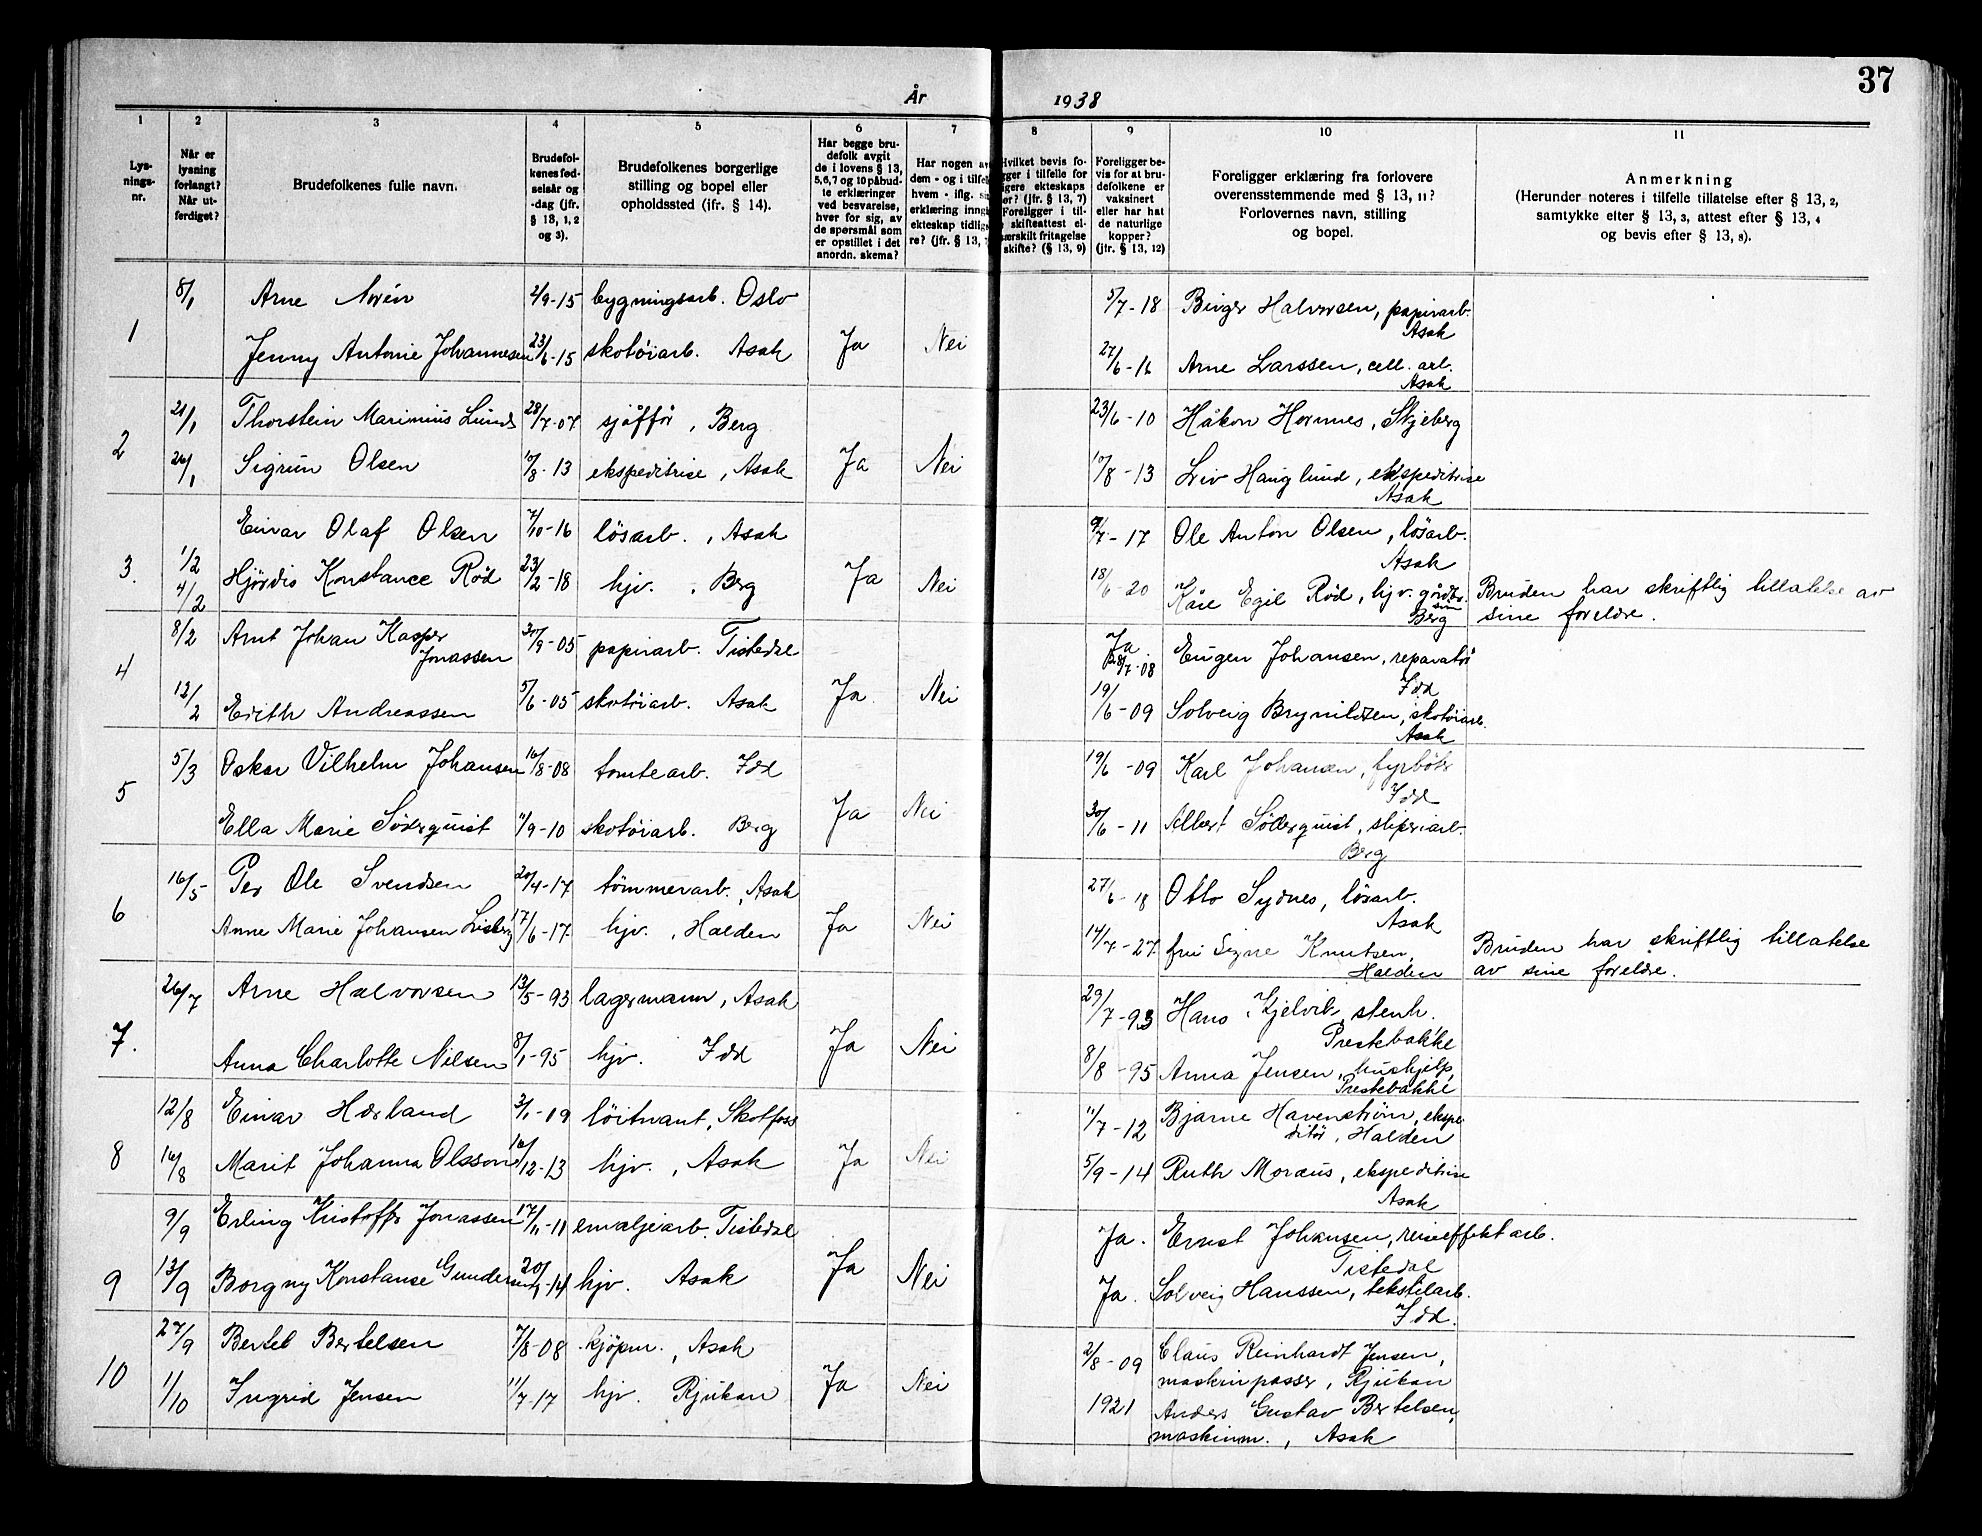 37
År 1938
1 2 3 4 5 6 7 8 9 10 11
Lys-
nings-
nr.
Når er
lysning
forlangt?
Når ut-
ferdiget?
Brudefolkenes fulle navn.
Brudefol-
kenes fød-
selsår og
-dag (jfr.
§ 13, 1, 2
og 3).
Brudefolkenes borgerlige
stilling og bopel eller
opholdssted (ifr. § 14).
Har begge bru-
defolk avgit
de i lovens § 13,
5,6,7 og 10 påbud-
te erklæringer
ved besvarelse,
hver for sig, av
de spørsmål som
er opstillet i det
anordn. skema?
Har nogen av
dem - og i tilfel
hvem - iflg. si
erklæring inng
ekteskap tidlig
re? (jfr. § 13, 7
Hvilket bevis fo-
gger i tilfelle for
igere ekteskaps
er? (jfr. § 13, 7)
Foreligger i til-
e skifteattest el-
særskilt fritagelse
skifte? (§ 13, 9)
Foreligger be-
vis for at bru-
defolkene er
vaksinert
eller har hat
de naturlige
kopper?
(jfr. § 13, 12)
Foreligger erklæring fra forlovere
overensstemmende med § 13, 11?
Forlovernes navn, stilling
og bopel.
Anmerkning
(Herunder noteres i tilfelle tillatelse efter § 13, 2,
samtykke efter § 13, 3, attest efter § 13, 4
og bevis efter § 13, 8).
1 8/1 Arne Norén 2/9-15 bygningsarb. Oslo 5/7-18 Birger Halvorsen, papirarb.
Asak
Jenny Antonie Johannesen 23/6-15 skotöiarb. Asak Ja Nei 27/6-16 Arne Larssen, cell. arb.
Asak
2 21/1 Thorstein Marinius Lunde 28/7-07 sjåfför, Berg 23/6-10 Håkon Hornnes, Skjeberg
26/1 Sigrun Olsen 10/8-13 ekspeditrise, Asak Ja Nei 10/8-13 Liv Hauglund, ekspeditrise
Asak
Einar Olaf Olsen 7/10-16 lösarb., Asak 9/7-17 Ole Anton Olsen, lösarb.
Asak
3. 1/2 4/2 Hjördis Konstance Röd 23/2-18 hjv., Berg Ja Nei 18/6-20 Kåre Egil Röd, hjv. gårdbr. sön Bruden har skriftlig tillatelse av
Berg sine foreldre.
4 8/2 Arnt Johan Kasper
Jonassen 30/9-05 papirarb. Tistedal Ja
28/7-08 Eugen Johansen, reparatör
Idd
12/2 Edith Andreassen 5/6-05 skotöiarb. Asak Ja. Nei 19/6-09 Solveig Brynildsen, skotöiarb.
Asak
5 5/3 Oskar Vilhelm Johansen 16/8-08 tomtearb. Idd 19/6-09 Karl Johansen, fyrböter
Idd
Ella Marie Söderquist 11/9-10 skotöiarb. Berg Ja Nei 30/6-11 Albert Söderquist, sliperiarb.
Berg
6 16/5 Per Ole Svendsen 20/4-17 tömmerarb., Asak 27/6-18 Otto Sydnes, lösarb.
Asak
Anne Marie Johansen Lisberg 17/6-17. hjv., Halden Ja Nei 14/7-27 fru Signe Knutsen, Bruden har skriftlig tillatelse
Halden av sine foreldre.
7. 26/7 Arne Halvorsen 13/5-93 lagermann, Asak 29/7-93 Hans Kjelvik, stenh.
Prestebakke
Anna Charlotte Nilsen 8/1-95 hjv. Idd Ja Nei 8/8-95 Anna Jensen, hushjelp,
Prestebakke
8 12/8 Einar Hærland 3/1-09 löitnant, Skotfoss 11/7-12 Bjarne Havenström, ekspe
ditör, Halden
16/8 Marit Johanna Olsson 16/12-13 hjv., Asak Ja Nei 5/9-14 Ruth Moræus, ekspeditrise
Asak
9/9 Erling Kristoffer Jonassen 17/11-11 emaljearb. Tistedal Ja. Ernst Johansen, reiseeffektarb.
Tistedal
9 13/9 Borgny Konstanse Gundersen 20/1-14 hjv. Asak Ja Nei Ja. Solveig Hanssen, tekstilarb.
Idd.
10 27/9 Bertel Bertelsen 7/8-08 kjöpm., Asak 2/8-09 Claus Reinhardt Jensen,
maskinpasser, Rjukan
1/10 Ingrid Jensen 11/7-17 hjv. Rjukan Ja Nei 1921 Anders Gustav Bertelsen,
maskinm., Asak